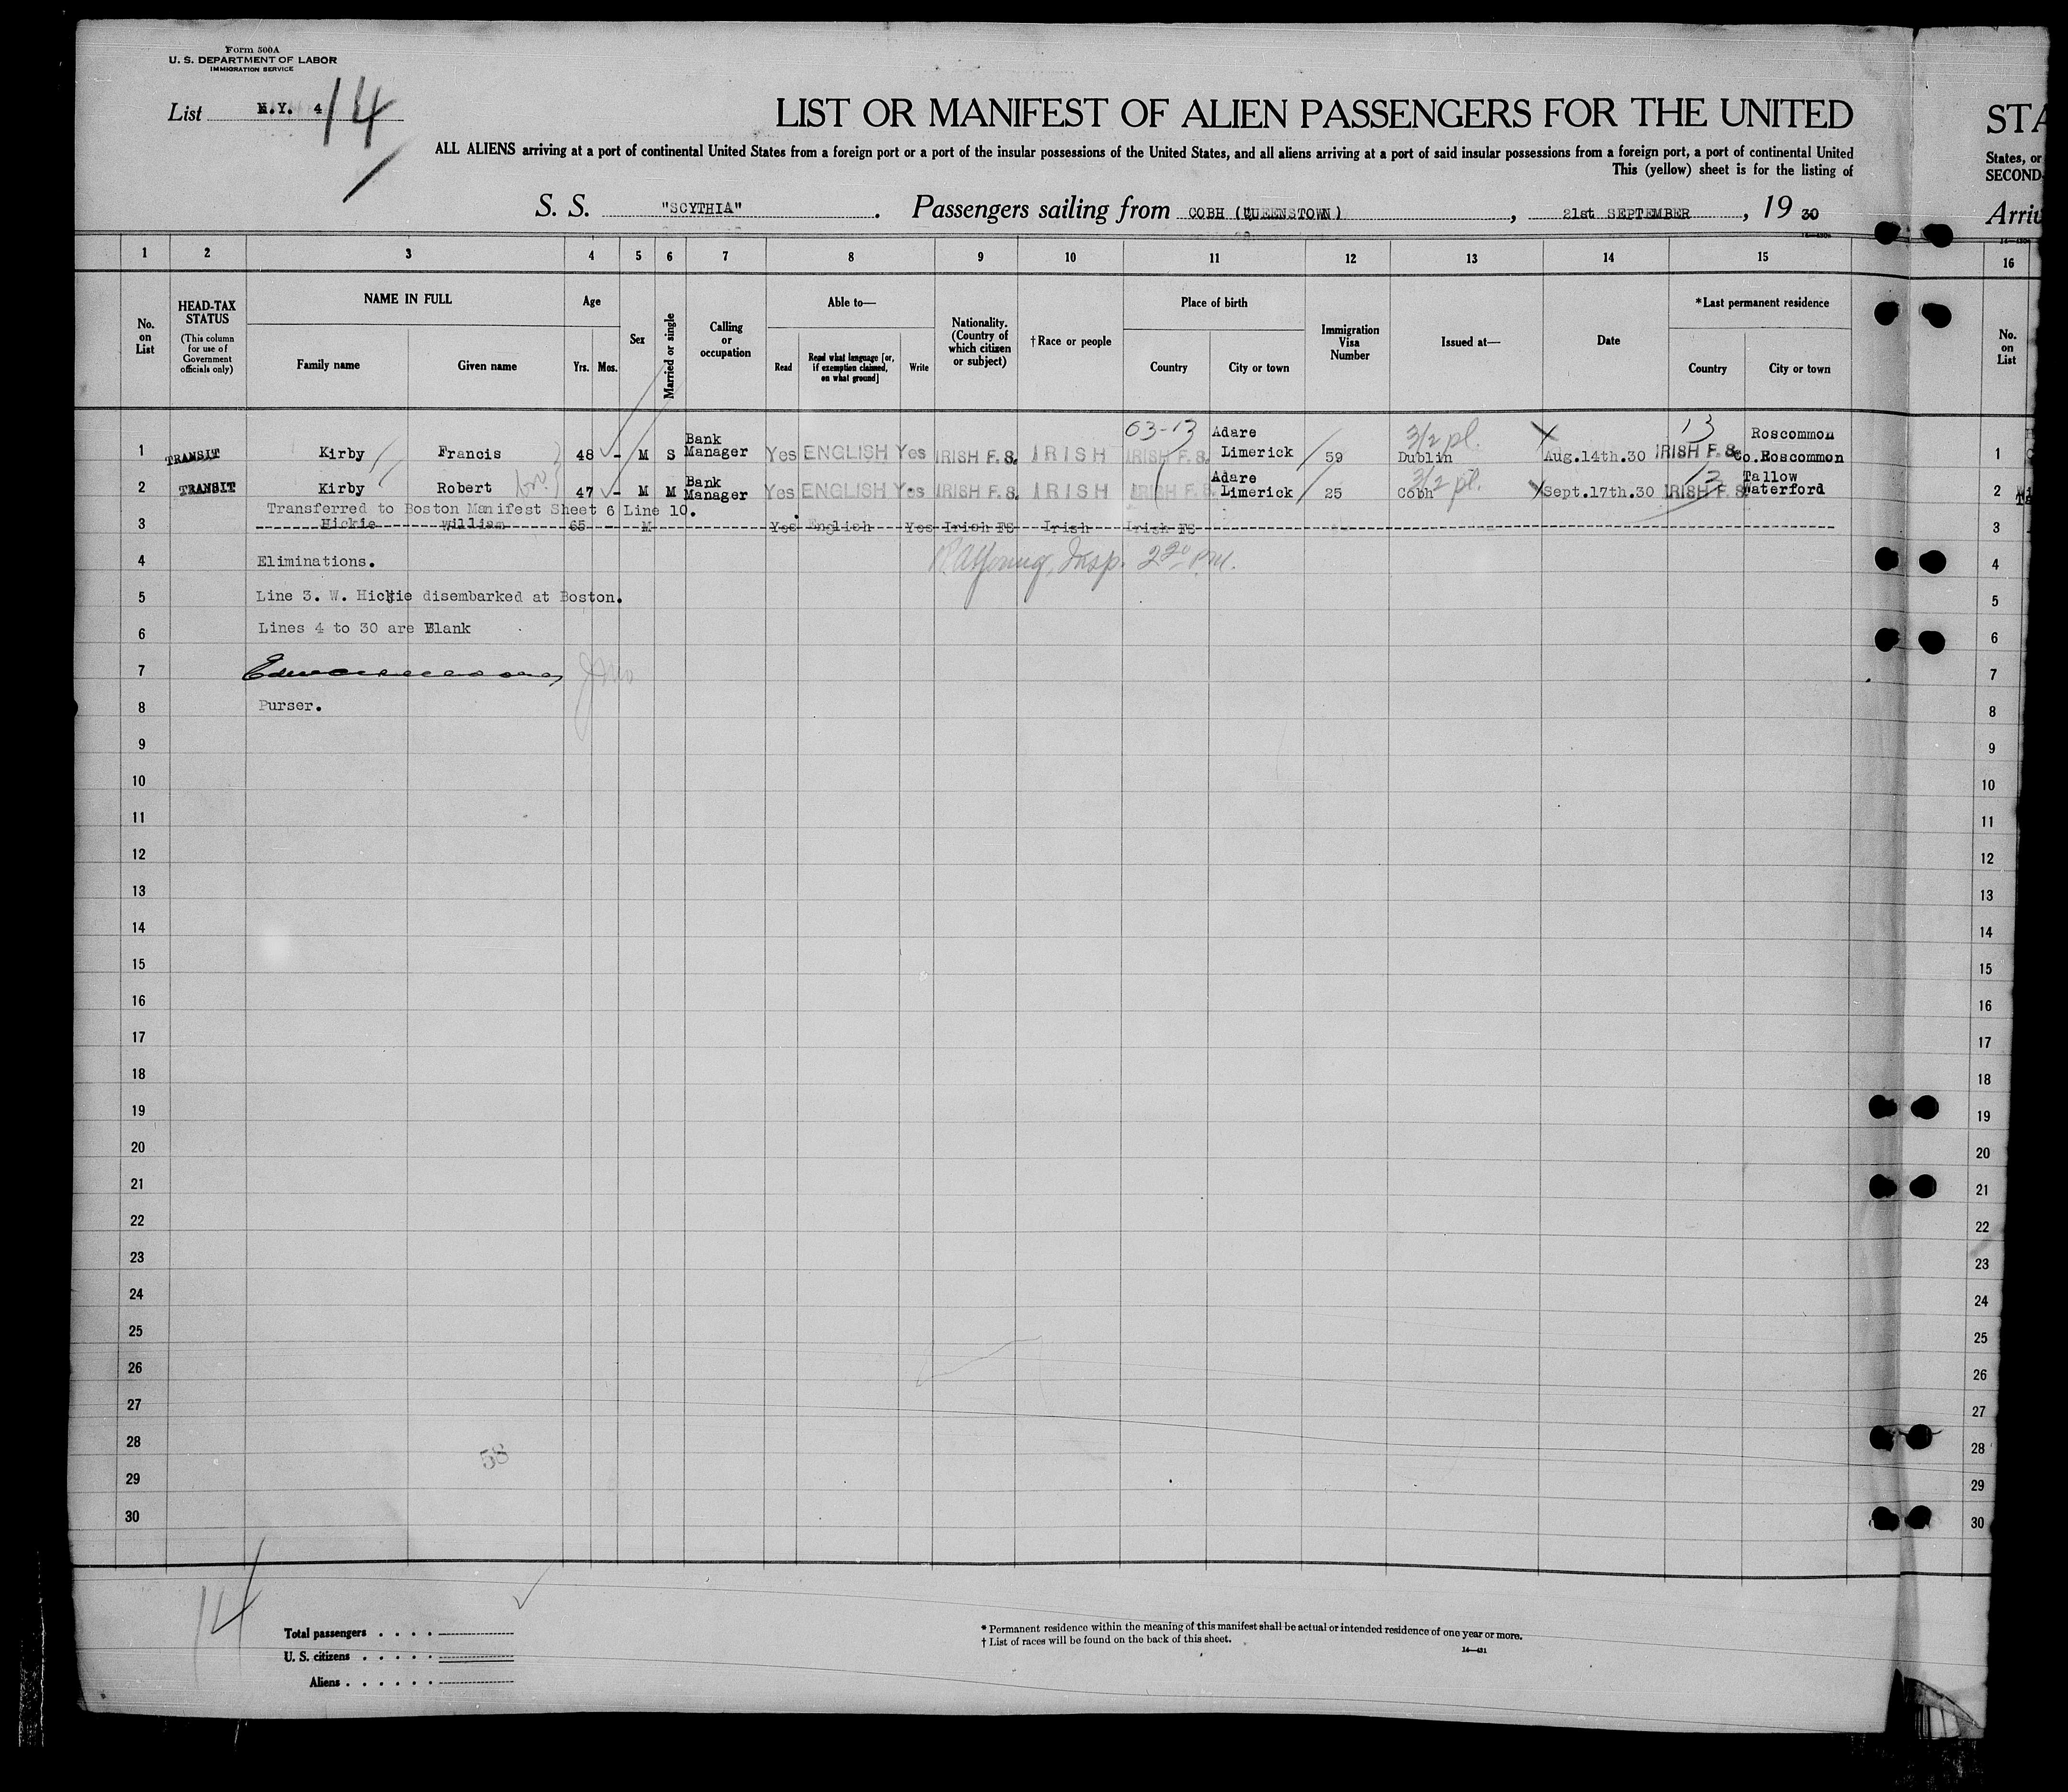 Form 500A
U. S. DEPARTMENT OF LABOR
IMMIGRATION SERVICE
List N.Y. 4 14
LIST OR MANIFEST OF ALIEN PASSENGERS FOR THE UNITED
ALL ALIENS arriving at a port of continental United States from a foreign port or a port of the insular possessions of the United States, and all aliens arriving at a port of said insular possessions from a foreign port, a port of continental United
This (yellow) sheet is for the listing of
S. S. "SCYTHIA" . Passengers sailing from COBH (QUEENSTOWN) , 21st SEPTEMBER , 19 30
STA
States, or
SECOND-
Arriv
1 2 3 4 5 6 7 8 9 10 11 12 13 14 15 16
No. on List
HEAD-TAX STATUS (This column for use of Government officials only)
NAME IN FULL
Family name Given name
Age
Yrs. Mos.
Sex
Married or single
Calling or occupation
Able to—
Read Read what language [or, if exemption claimed, on what ground] Write
Nationality. (Country of which citizen or subject)
†Race or people
Place of birth
Country City or town
Immigration Visa Number
Issued at—
Date
*Last permanent residence
Country City or town
No. on List
1 TRANSIT Kirby Francis 48 - M S Bank Manager Yes ENGLISH Yes IRISH F.S. IRISH 63-13 IRISH F.S. Adare Limerick 59 3/2 pl. Dublin Aug.14th.30 13 IRISH F.S. Roscommon Co.Roscommon 1
2 TRANSIT Kirby Robert 47 - M M Bank Manager Yes ENGLISH Yes IRISH F.S. IRISH IRISH F.S. Adare Limerick 25 3/2 pl. Cobh Sept.17th.30 13 IRISH F.S. Tallow Waterford 2
Transferred to Boston Manifest Sheet 6 Line 10.
3 Hickie William 65 M Yes English Yes Irish FS Irish Irish FS 3
4 Eliminations. Insp. 2 20 P.M. 4
5 Line 3. W. Hickie disembarked at Boston. 5
6 Lines 4 to 30 are Blank 6
7 7
8 Purser. 8
9 9
10 10
11 11
12 12
13 13
14 14
15 15
16 16
17 17
18 18
19 19
20 20
21 21
22 22
23 23
24 24
25 25
26 26
27 27
28 58 28
29 29
30 30
14
Total passengers . . . .
U. S. citizens . . . . .
Aliens . . . . . .
* Permanent residence within the meaning of this manifest shall be actual or intended residence of one year or more.
† List of races will be found on the back of this sheet.
14—431